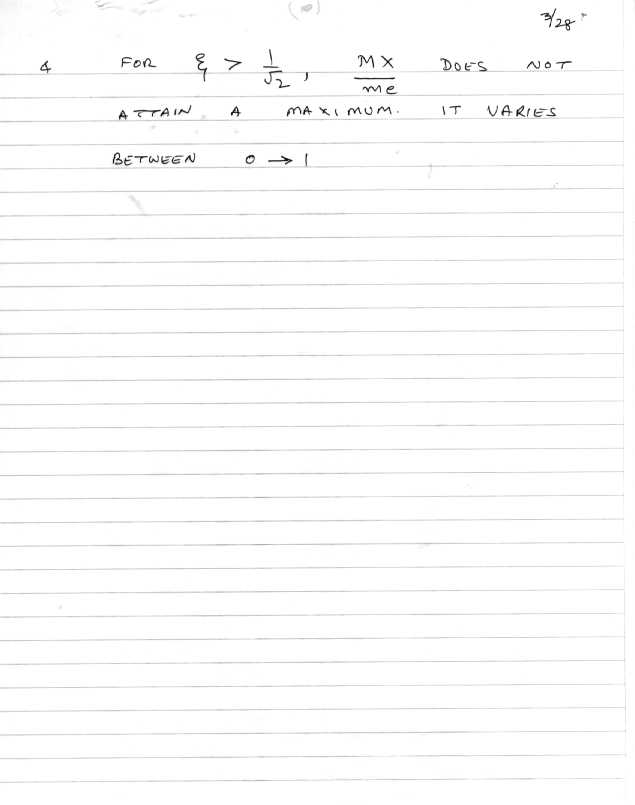 3/28
4 FOR ξ > 1/√2, MX/me DOES NOT
ATTAIN A MAXIMUM. IT VARIES
BETWEEN 0 → 1